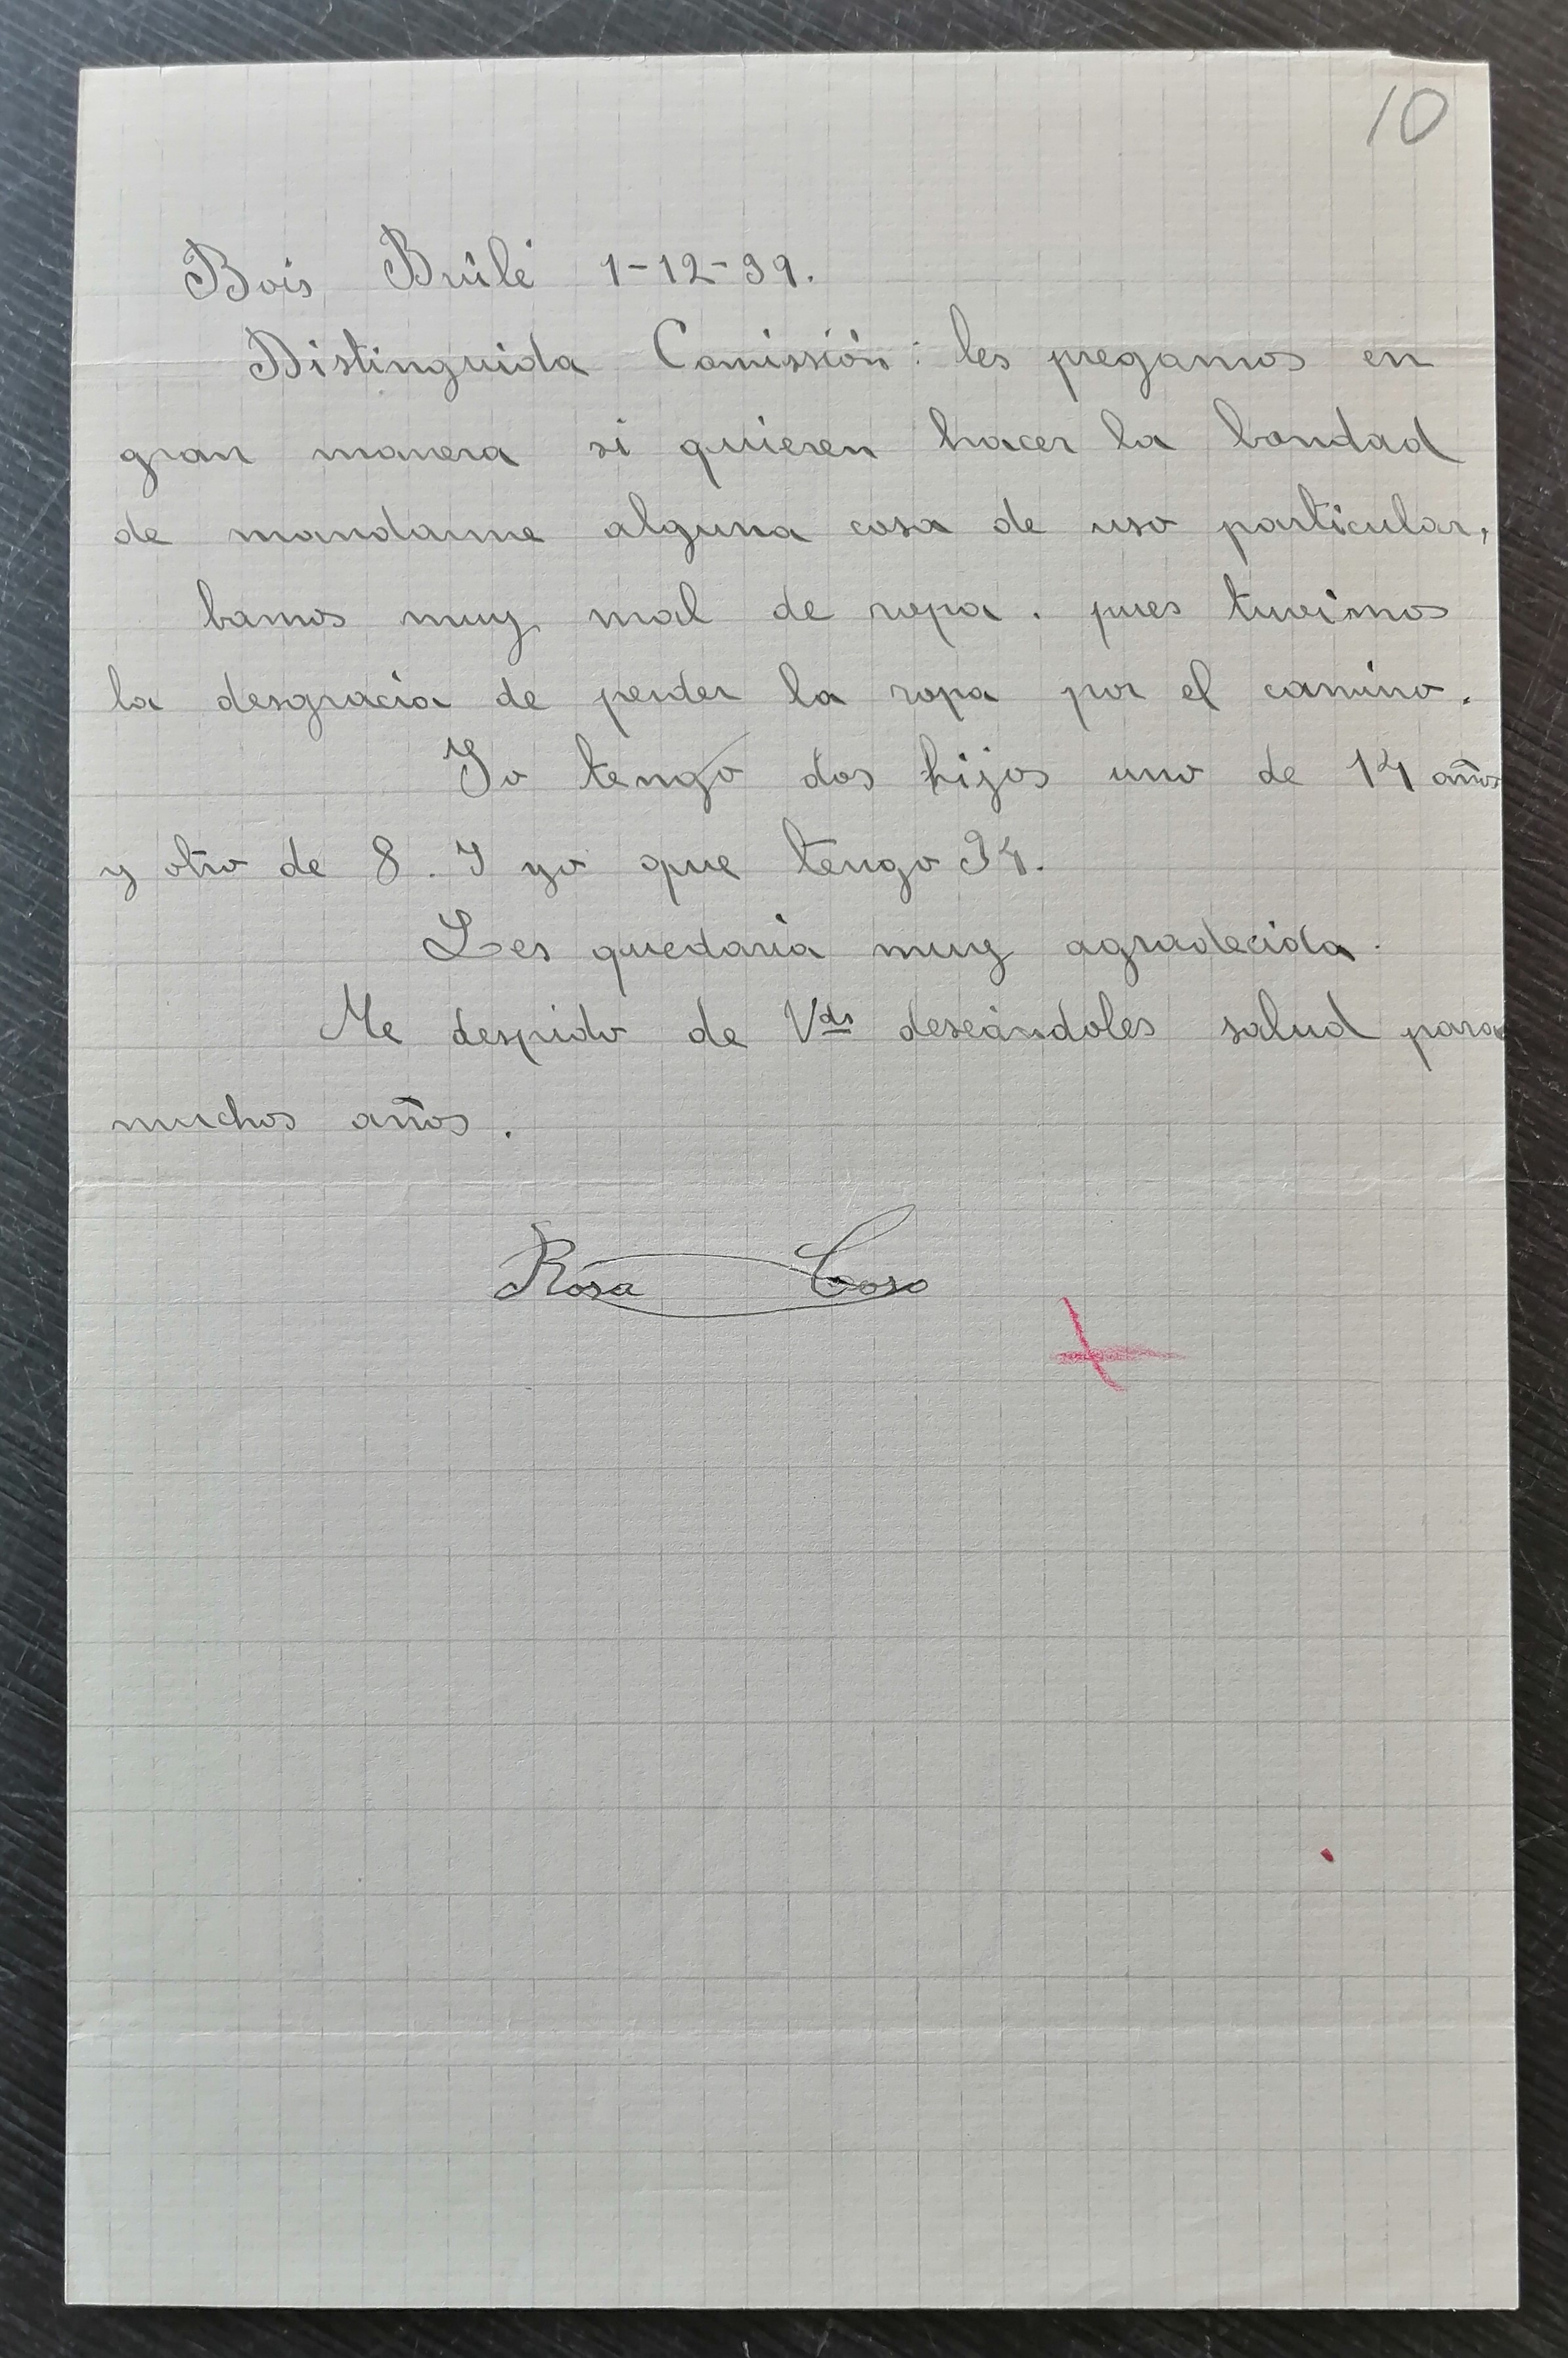 10
Bois Brûlé 1-12-39.
Distinguida Comissión: les pregamos en
gran manera si quieren hacer la bondad
de mandarme alguna cosa de uso particular,
bamos muy mal de ropa. pues tuvimos
la desgracia de perder la ropa por el camino.
Yo tengo dos hijos uno de 14 años
y otro de 8. Y yo que tengo 34.
Les quedaria muy agradecida.
Me despido de Vds deseándoles salud para
muchos años.
Rosa